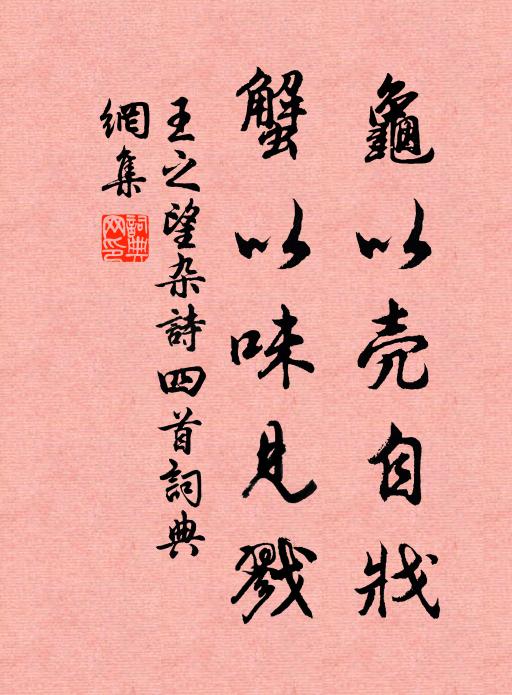 龜以壳自戕
蟹以味見戮
王之望杂詩四首詞典
網集
詞典
网印